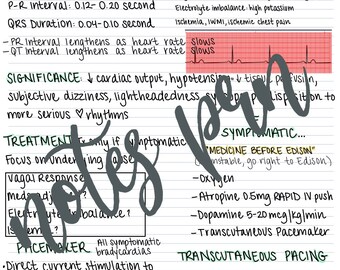 P-R Interval: 0.12- 0.20 second
QRS Duration: 0.04-0.10 second
-PR Interval lengthens as heart rate slows
-QT Interval lengthens as heart rate slows
Electrolyte imbalance: high potassium
Ischemia, IWMI, ischemic chest pain
SIGNIFICANCE: ↓ cardiac output, hypotension, ↓ tissue perfusion,
subjective dizziness, lightheadedness, syncope, predisposition to
more serious ♡ rhythms
TREATMENT: only if symptomatic
Focus on underlying cause
Vagal Response
meds
Electrolyte Imbalance?
PACEMAKER
All symptomatic
bradycardias
•Direct current stimulation to
SYMPTOMATIC...
"MEDICINE BEFORE EDISON"
(unstable, go right to Edison)
-Oxygen
-Atropine 0.5mg RAPID IV push
-Dopamine 5-20 mcg/kg/min
-Transcutaneous Pacemaker
TRANSCUTANEOUS PACING
notes prn